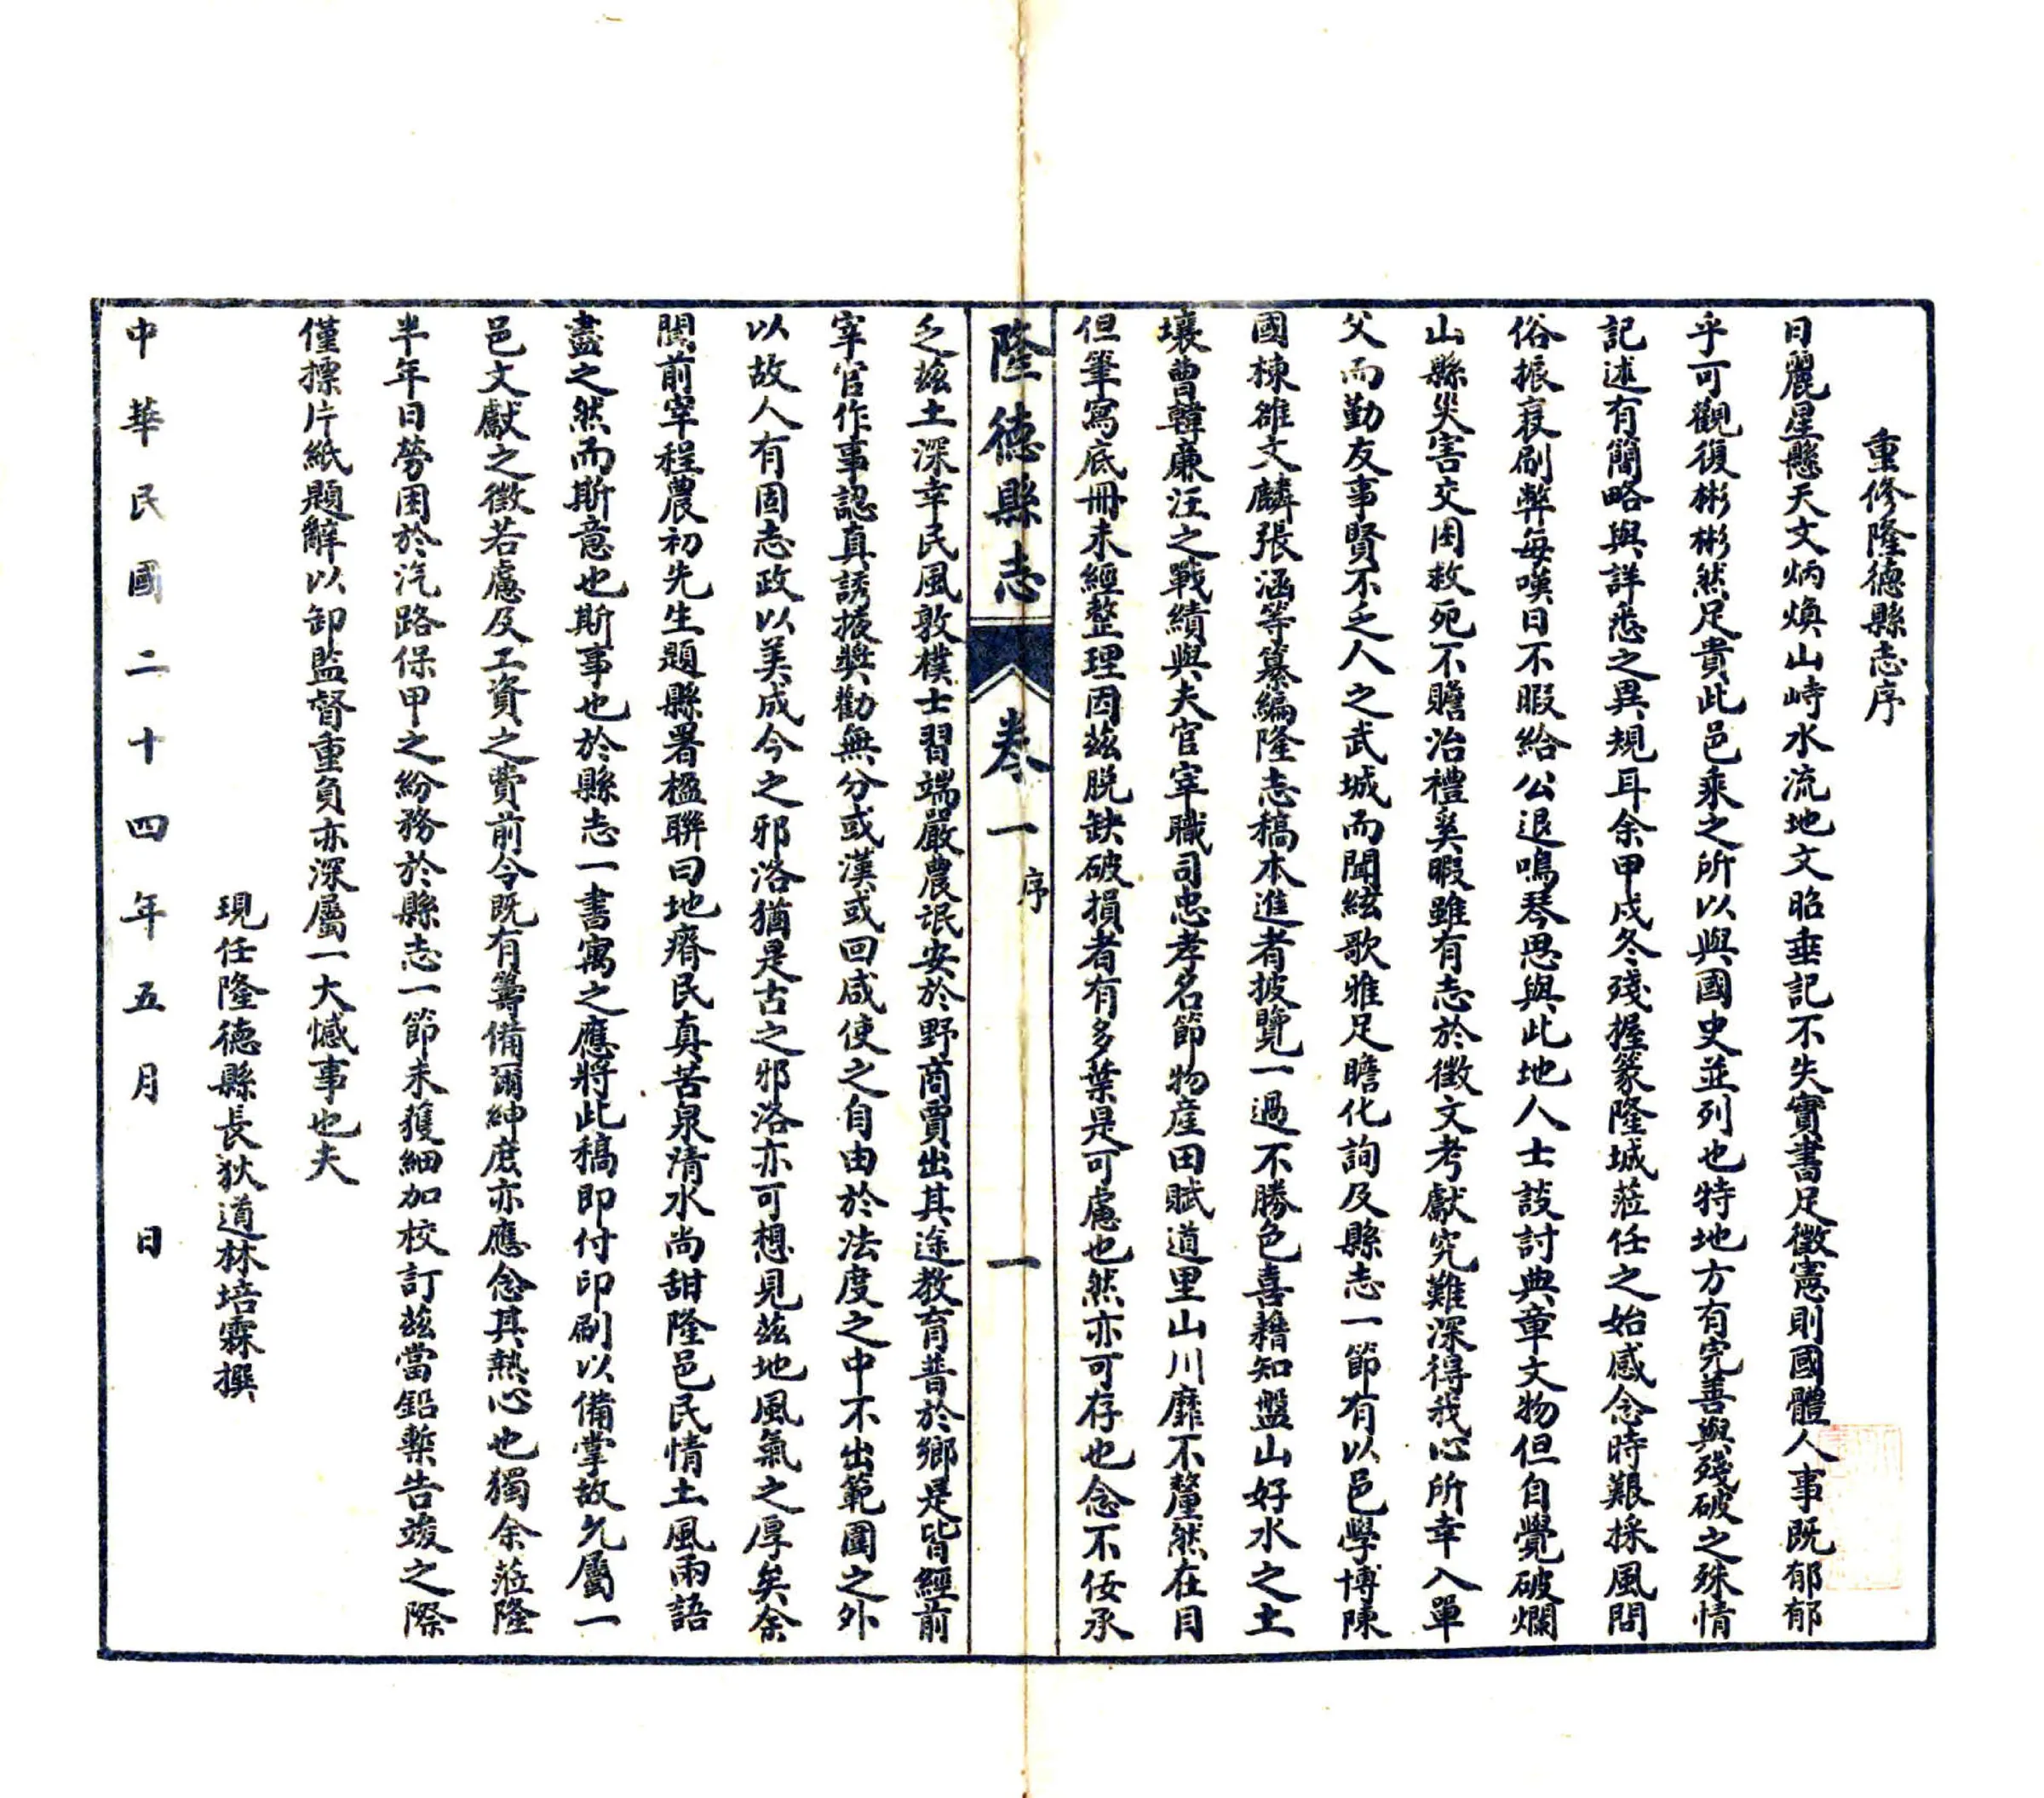 重修隆德縣志序
日麗星懸天文炳煥山峙水流地文昭垂記不失實書足徵憲則國體人事既郁郁
乎可觀復彬彬然足貴此邑乘之所以與國史並列也特地方有完善與殘破之殊情
記述有簡略與詳悉之異規耳余甲戍冬殘握篆隆城蒞任之始感念時艱採風問
俗振衰刷弊每嘆日不暇給公退鳴琴思與此地人士設討典章文物但自覺破爛
山縣災害交困救死不贍治禮奚暇雖有志於徵文考獻究難深得我心所幸入單
父而勤友事賢不乏人之武城而聞絃歌雅足瞻化詢及縣志一節有以邑學博陳
國棟雒文麟張涵等纂編隆志稿本進者披覽一過不勝色喜藉知盤山好水之土
壤曹韓廉汪之戰績與夫官宰職司忠孝名節物產田賦道里山川靡不釐然在目
但筆寫底冊未經整理因茲脱缺破損者有多葉是可慮也然亦可存也念不佞承
隆德縣志
卷一
序
一
乏茲土深幸民風敦樸士習端嚴農氓安於野商賈出其途教育普於鄉是皆經前
宰官作事認真誘掖獎勸無分或漢或回咸使之自由於法度之中不出範圍之外
以故人有固志政以美成今之邪洛猶是古之邪洛亦可想見茲地風氣之厚矣余
閱前宰程農初先生題縣署楹聯曰地瘠民真苦泉清水尚甜隆邑民情土風兩語
盡之然而斯意也斯事也於縣志一書寓之應將此稿即付印刷以備掌故允屬一
邑文獻之徵若慮及工資之費前令既有籌備爾紳庶亦應念其熱心也獨余蒞隆
半年日勞困於汽路保甲之紛務於縣志一節未獲細加校訂茲當鉛槧告竣之際
僅摽片紙題辭以卸監督重負亦深屬一大憾事也夫
現任隆德縣長狄道林培霖撰
中華民國二十四年五月日